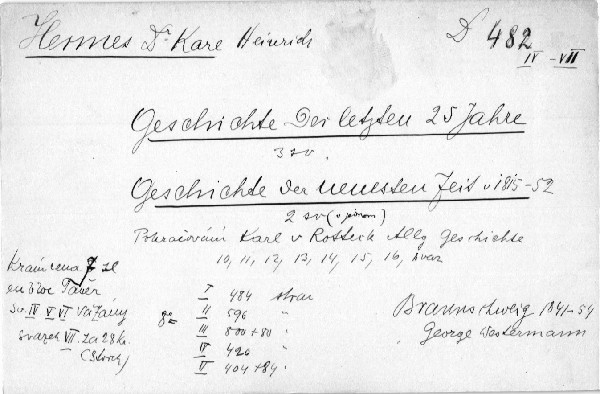 Hermes Dr Karl Heinrich D 482
IV - VII
Geschichte der letzten 25 Jahre
3 sv.
Geschichte der neuesten Zeit v 1815-52
2 sv (v jednom)
Pokračování Karl v Rotteck Allg Geschichte
10, 11, 12, 13, 14, 15, 16, svaz
Krám cena 7 zl
en bloc
Sv. IV V VI vázány
svazek VII. za 28 kr.
(Storch)
I 484 stran
II 596 "
III 800+80 "
IV 426 "
V 404+84 "
Braunschweig 1841-54
George Westermann